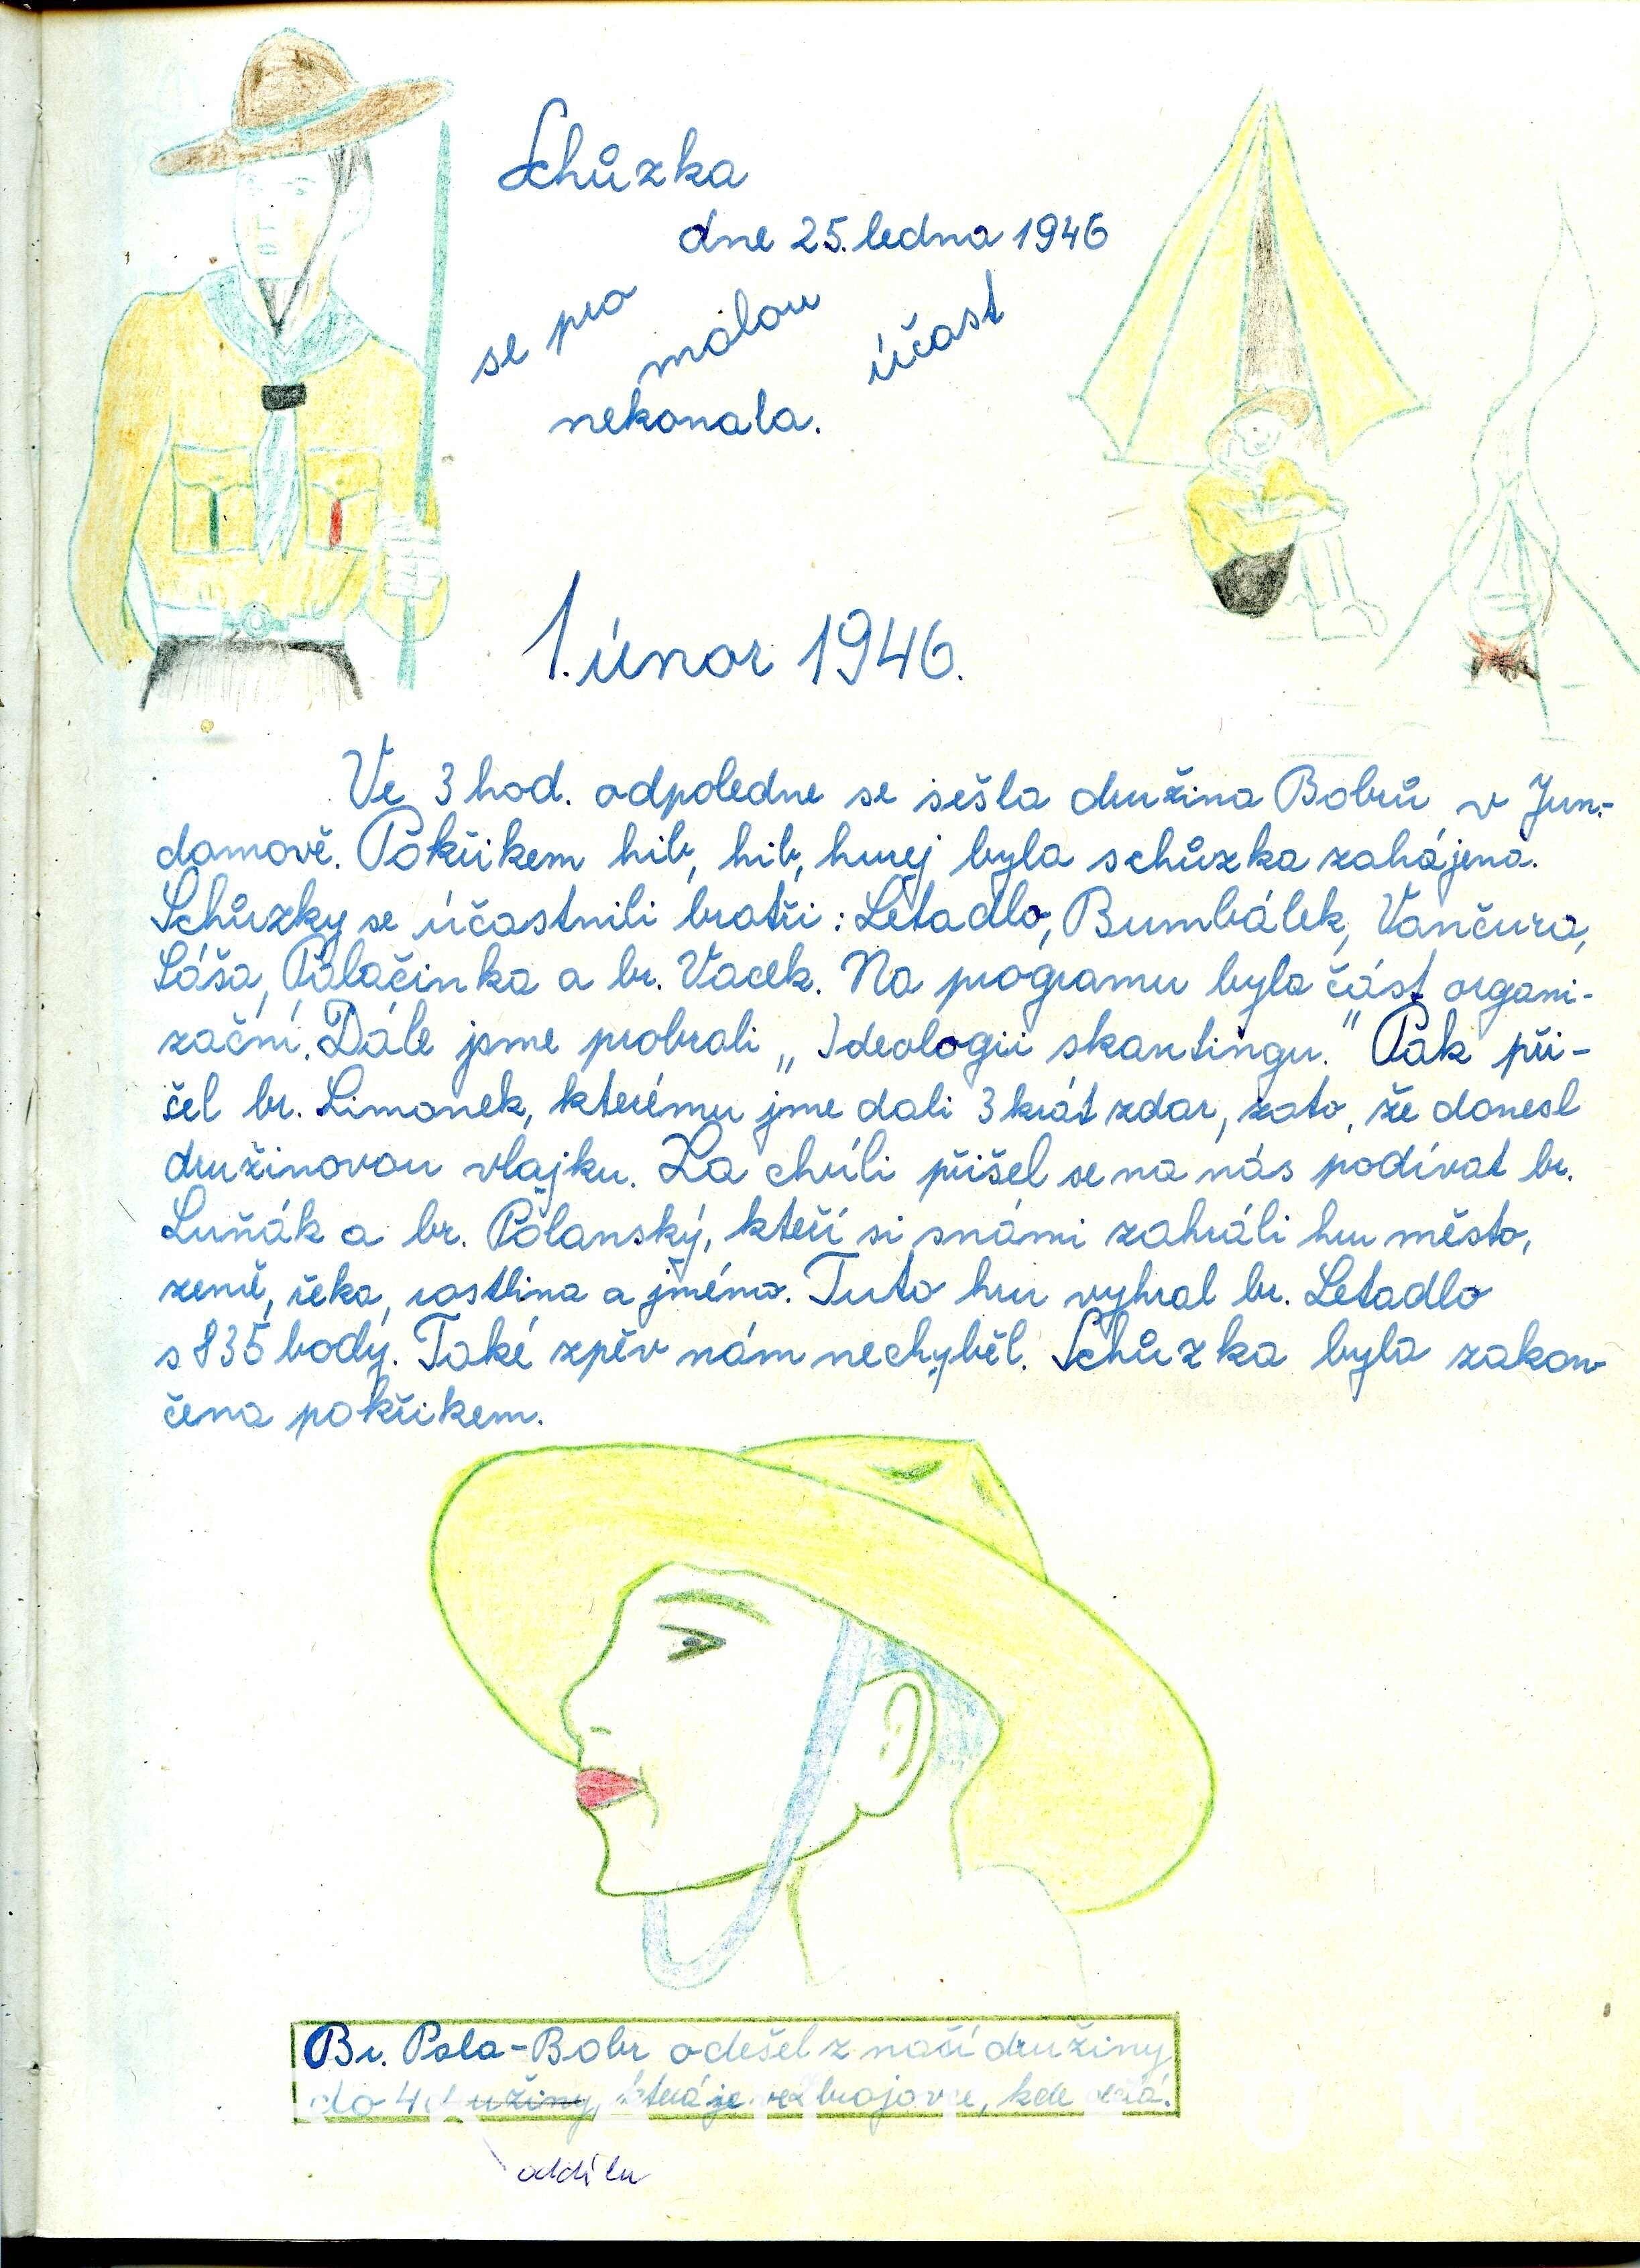 Schůzka
dne 25. ledna 1946
se pro malou účast
nekonala.
1. únor 1946.
Ve 3 hod. odpoledne se sešla družina Bobrů v Jun-
domově. Pokřikem hib, hib, hurej byla schůzka zahájena.
Schůzky se účastnili bratři: Letadlo, Bumbálek, Vančura,
Sáša, Palačinka a br. Vacek. Na programu byla část organi-
zační. Dále jsme probrali „Ideologii skautingu." Pak při-
šel br. Limonek, kterému jme dali 3 krát zdar, zato, že donesl
družinovou vlajku. Za chvíli přišel se na nás podívat br.
Luňák a br. Polanský, kteří si snámi zahráli hru město,
země, řeka, rostlina a jméno. Tuto hru vyhrál br. Letadlo
s 835 body. Také zpěv nám nechyběl. Schůzka byla zakon-
čena pokřikem.
Br. Pala-Bobr odešel z naší družiny
do 4. družiny, která je ve Zbrojovce, kde
oddílu